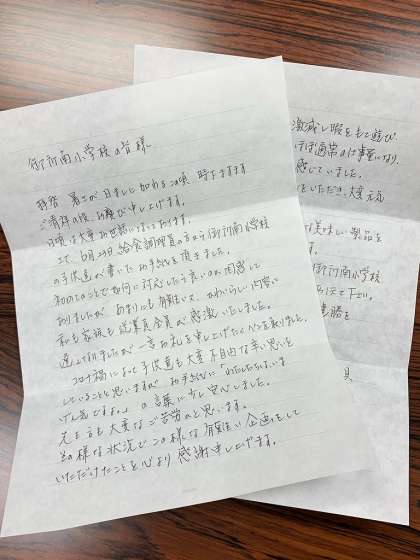 御所南小学校の皆様
拝啓 暑さが日ましに加わるこの頃 時下ますます
ご清祥の段、お慶び申し上げます。
日頃は大変お世話になっております。
さて、6月29日給食調理員の方から御所南小学校
の子供達が書いたお手紙を頂きました。
初めてのことで如何に対応したら良いのか困惑して
おりましたが、あまりにも有難いし、かわいらしい内容に
私も家族も従業員全員が感激いたしました。
遅くなりましたが一言お礼を申し上げたくペンを取りました。
コロナ禍によって子供達も大変不自由な辛い思いを
していることと思いますが、お手紙に「わたしたちはいま
げん気ですよ。」の言葉に少し安心しました。
先生方も大変なご苦労のことと思います。
その様な状況でこの様な有難い企画をして
いただけたことを心より感謝申し上げます。
激減し暇をもて遊び
ほぼ通常の仕事量になり
感じていました。
をいただき、大変元気
美味しい製品を
す。
御所南小学校
下さい。
具